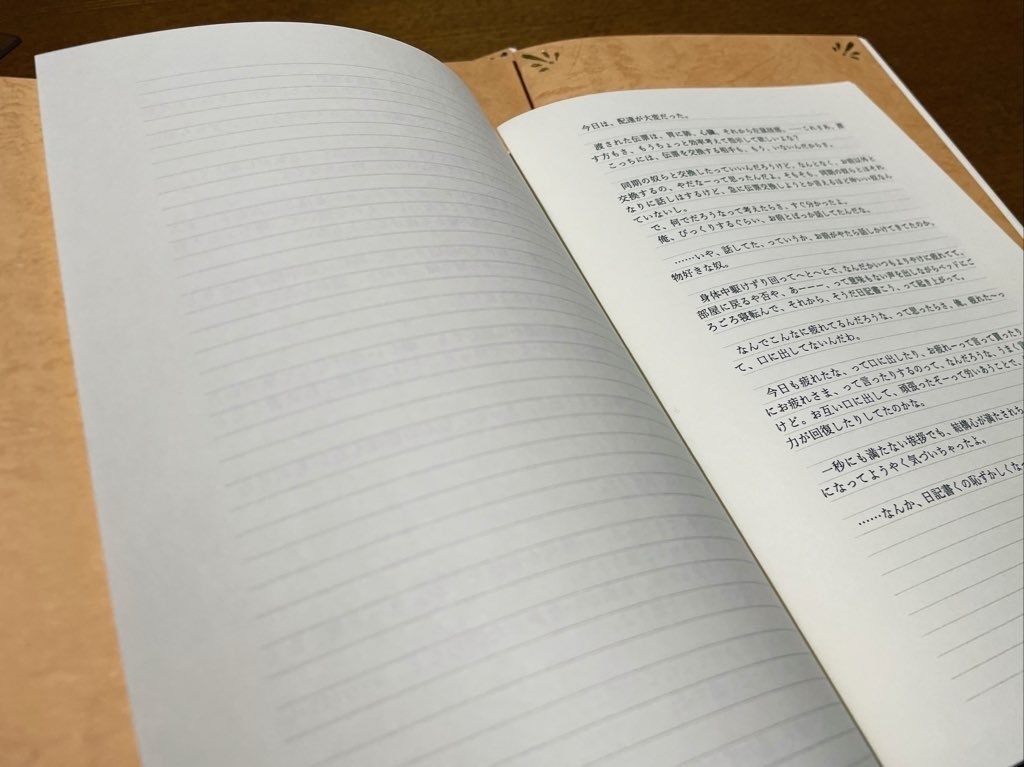 今日は、配達が大変だった。
渡された伝票は、胃に肺、心臓、それから
す方もさ、もうちょっと効率考えて指示して欲しいよな?
こっちには、伝票を交換する相手も、もう、いないんだからさ。
同期の奴らと交換したっていいんだろうけど、なんとなく、お前以外と
交換するの、やだなーって思ったんだよ。そもそも、同期の奴らとはそれ
なりに話しはするけど、急に伝票交換しようとか言えるほど仲いい奴なん
ていないし。
で、何でだろうなって考えたらさ、すぐ分かったよ。
俺、びっくりするぐらい、お前とばっか話してたんだな。
……いや、話してた、っていうか、お前がやたら話しかけてきてたのか。
物好きな奴。
身体中駆けずり回ってへとへとで、なんだかいつもよりやけに疲れてて、
部屋に戻るや否や、あーーー、って意味もない声を出しながらベッドにご
ろごろ寝転んで、それから、そうだ日記書こう、って起き上がって、
なんでこんなに疲れてるんだろうな、って思ったらさ、俺、疲れたーっ
て、口に出してないんだわ。
今日も疲れたな、って口に出したり、お疲れーって言って貰ったり
にお疲れさま、って言ったりするのって、なんだろうな、うまく
けど。お互い口に出して、頑張ったぞーって労いあうことで、
力が回復したりしてたのかな。
一秒にも満たない挨拶でも、結構心が満たされ
になってようやく気づいちゃったよ。
……なんか、日記書くの恥ずかしくな